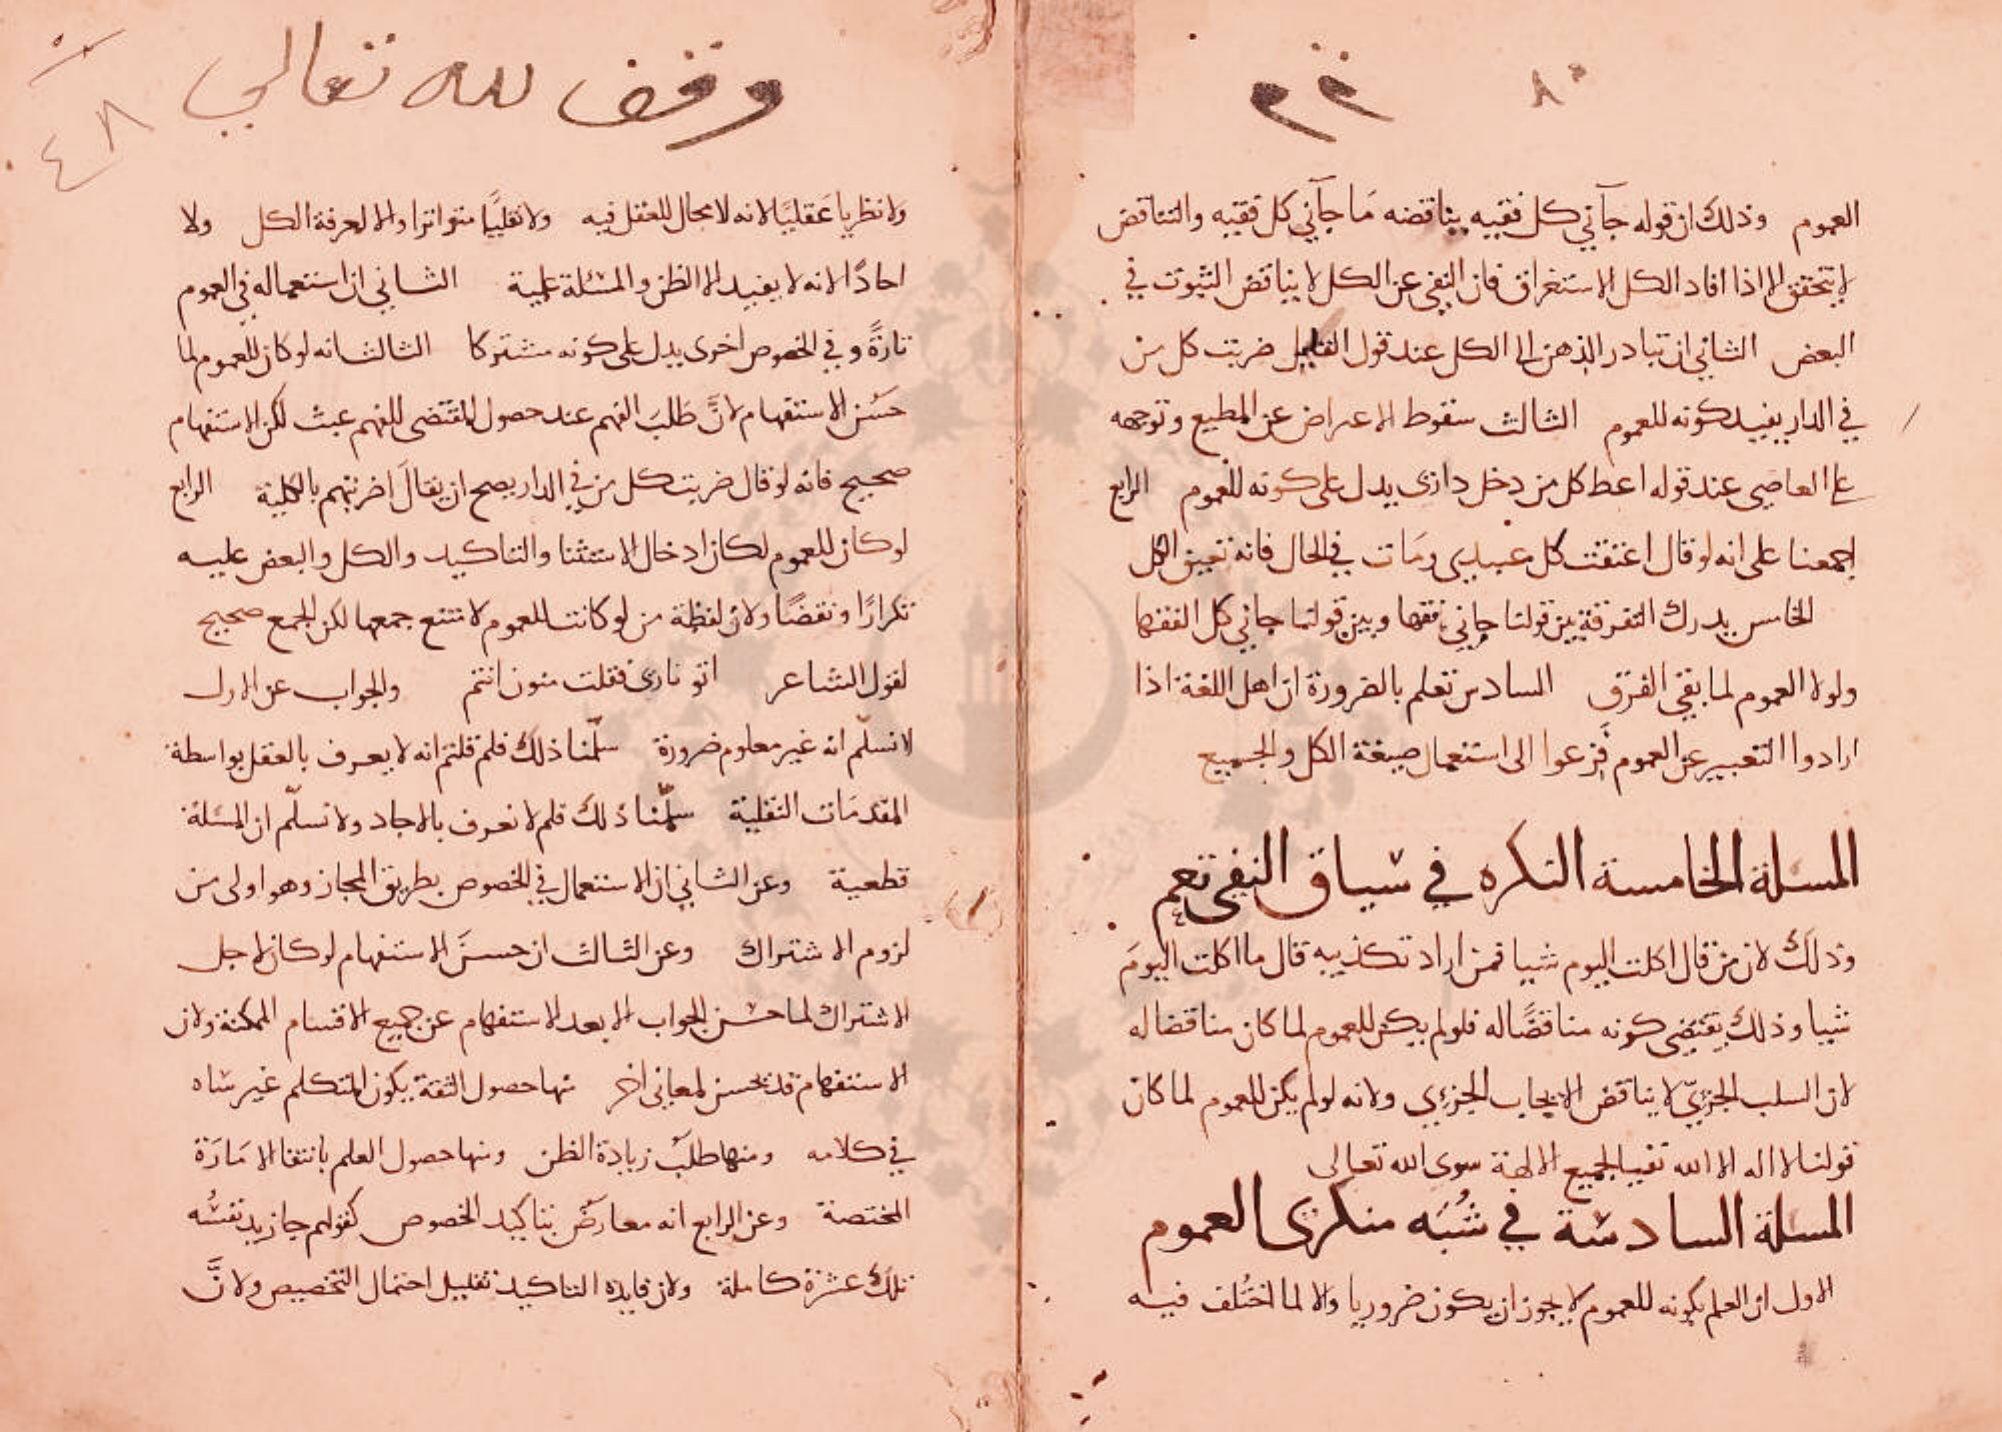 ٨٥
العموم وذلك ان قوله جآني كل فقيه يناقضه مَا جآني كل فقيه والتناقض
لا يتحقق الا اذا افاد الكل الاستغراق فان النفى عن الكل لا يناقض الثبوت في
البعض الثاني ان تبادر الذهن الى الكل عند قول القايل ضربت كل من
في الدار يفيد كونه للعموم الثالث سقوط الاعتراض عن المطيع وتوجهه
على العاصي عند قوله اعط كل من دخل دارى يدل على كونه للعموم الرابع
اجمعنا على انه لو قال اعتقت كل عبيدى ومَات في الحال فانه تعين الكل
الخامس يدرك التفرقة بين قولنا جاني فقها وبين قولنا جاني كل الفقها
ولولا العموم لما بقى الفرق السادس نعلم بالضرورة ان اهل اللغة اذا
ارادوا التعبير عن العموم فزعوا الى استعمال صيغة الكل والجميع
المسلة الخامسة النكره في سياق النفى تعم
وذلك لان من قال اكلت اليوم شيا فمن اراد تكذيبه قال ما اكلت اليومَ
شيا وذلك يقتضى كونه مناقضًا له فلو لم يكن للعموم لما كان مناقضا له
لان السلب الجزيّ لا يناقض الايجاب الجزءي ولانه لو لم يكن للعموم لما كان
قولنا لا اله الا الله نفيا لجميع الالهة سوى الله تعالى
المسلة السادسة في شُبَه منكرى العموم
الاول ان العلم بكونه للعموم لا يجوز ان يكون ضروريا والا لما اختُلف فيه
وقف لله تعالى
٤٨
ولا نظريا عَقليًا لانه لا مجال للعقل فيه ولا نقليًا متواترا والا لعرفة الكل ولا
احادًا لانه لا يفيد الا الظن والمسئلة علمية الثاني ان استعماله في العموم
تارةً وفي الخصوص اخرى يدل على كونه مشتركا الثالث انه لو كان للعموم لما
حَسُن الاستفهام لانَّ طَلبَ الفهم عند حصول المقتضى للفهم عبث لكن الاستفهام
صحيح فانه لو قال ضربت كل من في الدار يصح ان يقالَ اضربتهم بالكلية الرابع
لو كان للعموم لكان ادخال الاستثنا والتاكيد والكل والبعض عليه
تكرارًا ونقضًا ولان لفظة من لو كانت للعموم لامتنع جمعها لكن الجمع صحيح
لقول الشاعر اتو نارى فقلت منون انتم والجواب عن الاول
لا نسلّم انه غير معلوم ضرورة سلّمنا ذلك فلم قلتم انه لا يعرف بالعقل بواسطة
المقدمَات النقلية سلّمنا ذلك فلم لا نعرف بالاحاد ولا نسلّم ان المسئلة
قطعية وعن الثاني ان الاستعمال في الخصوص بطريق المجاز وهو اولى من
لزوم الاشتراك وعن الثالث ان حسنَ الاستفهام لو كان لاجل
الاشتراك لما حسن الجواب الا بعد الاستفهام عن جميع الاقسام الممكنة ولان
الاستفهام قد يحسن لمعانى اخر منها حصول الثقة بكون المتكلم غير ساه
في كلامه ومنها طلبُ زيادة الظن ومنها حصول العلم بانتفا الامَارَة
المختصة وعن الرابع انه معارضٌ بتاكيد الخصوص كقولهم جا زيد نفسُه
تلك عشرة كاملة ولان فايده التاكيد تقليل احتمال التخصيص ولانَّ